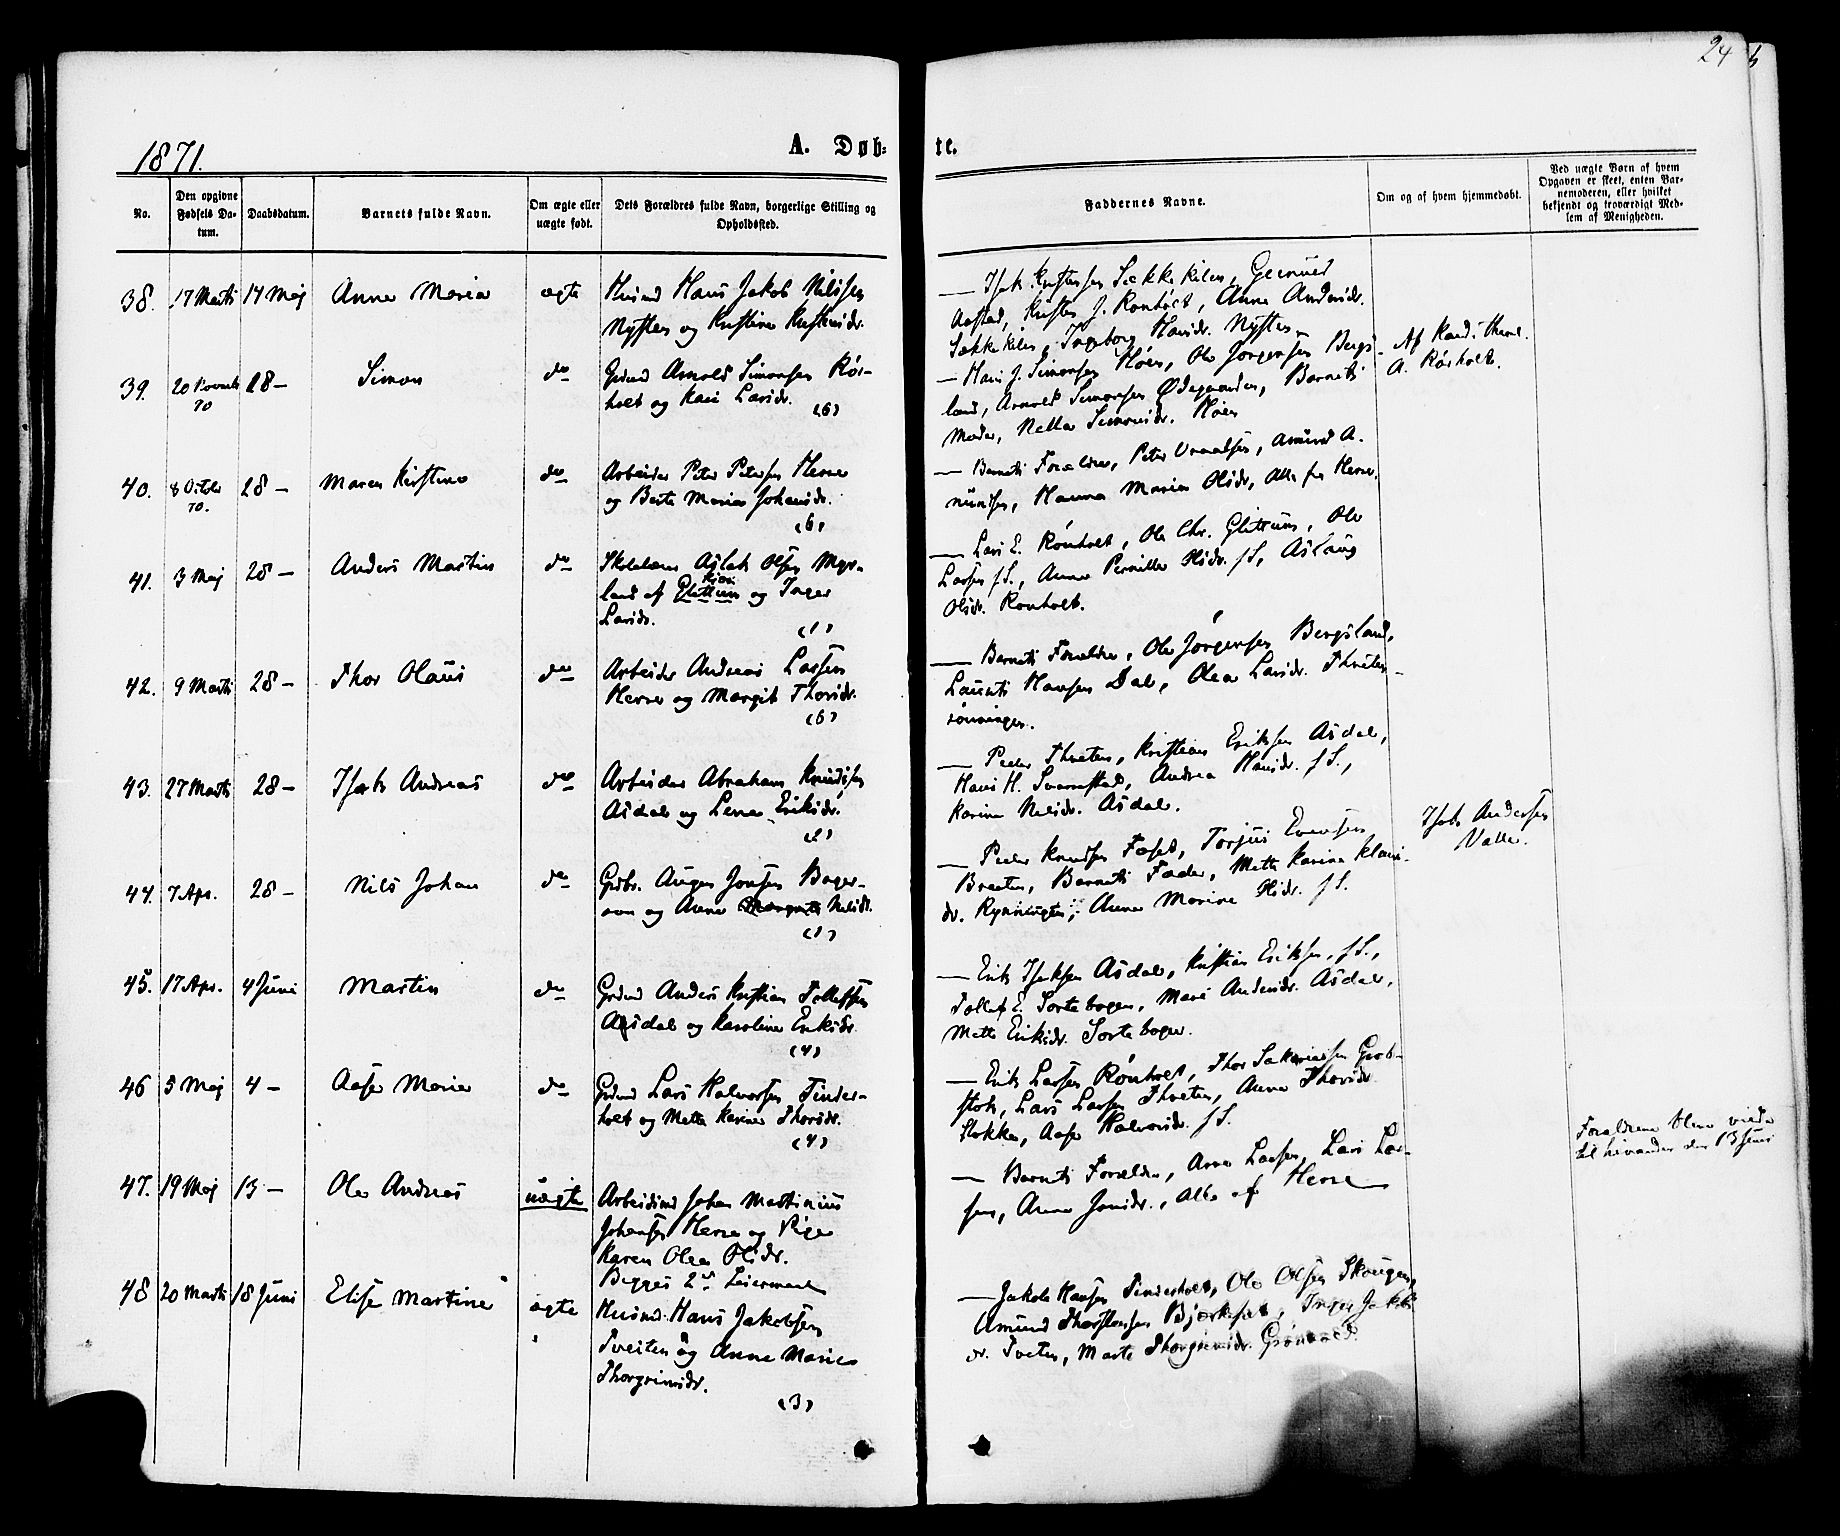 24
1871.
A. Døb-
te.
No.
Den opgivne Fødsels Da-tum.
Daabsdatum.
Barnets fulde Navn.
Om ægte eller uægte født.
Dets Forældres fulde Navn, borgerlige Stilling og Opholdssted.
Faddernes Navne.
Om og af hvem hjemmedøbt.
Ved uægte Børn af hvem Opgaven er skeet, enten Bar-nemoderen, eller hvilket bekjendt og troværdigt Med-lem af Menigheden.
38. 17 Marts 14 Maj Anne Maria ægte Husmd Hans Jakob Nilssen
Nysten og Kristine Kristensdr.
— Isak Kristensen Sækkekilen, Gjermund
Aastad, Kristen J. Rønholt, Anne Andersdr.
Sækkekilen, Ingeborg Hansdr. Nysten
39. 20 Novemb 70 28 — Simon do Grdmd Arnold Simonsen Rös-
holt og Kari Larsdr.
(6)
— Hans J. Simonsen Höen, Ole Jørgensen Bergs-
land, Arnold Simonsen Ødegaarden, Barnets
Moder, Nella Simonsdr. Höen
Af Kand. theol.
A. Rösholt.
40. 8 Octobr 70. 28 — Maren Kirstine do Arbeider Peter Petersen Herre
og Berte Maria Johansdr.
(6)
— Barnets Forældre, Peter Vraalsen, Amund A-
mundsen, Hanna Maria Olsdr, alle fra Herre.
41. 3 Maj 28 — Anders Martin do Skolelærer Aslak Olsen Myr-
land af Glittum og Inger
Larsdr.
(1)
— Lars E. Rönholt, Ole Chr. Glittum, Ole
Larsen f.S., Anne Pernille Olsdr. f.S, Aslaug
Olsdr. Rønholt.
42. 9 Marts 28 — Thor Olaus do Arbeider Andreas Larsen
Herre og Margit Thorsdr.
(6)
— Barnets Forældre, Ole Jörgensen Bergsland,
Laurits Hansen Dal, Olea Larsdr. Thveten-
rönningen.
43. 27 Marts 28 — Isak Andreas do Arbeider Abraham Knudsen
Asdal og Lene Eriksdr.
(2)
— Peder Thveten, Kristian Eriksen Asdal,
Hans H. Svanstad, Andrea Hansdr. f.S.,
Karine Nilsdr. Asdal.
44. 7 Apr. 28 — Nils Johan do Grdbr. Augen Jonsen Boger-
aen og Anne Nelsdr.
(1)
— Peder Knudsen Foset, Torjus Evensen
Braaten, Barnets Fader, Mette Karine Klaus-
dr. Rynningen, Anne Marine Olsdr. f.S.
Isak Andersen
Valle.
45. 17 Apr. 4 Juni Martin do Grdmd Anders Kristian Tollefsen
Asdal og Karoline Eriksdr.
(4)
— Erik Isaksen Asdal, Kristian Eriksen, f.S.,
Tollef E. Sortebogen, Mari Andersdr. Asdal,
Mette Eriksdr. Sortebogen.
46 5 Maj 4 — Aase Marie do Grdmd Lars Halvorsen Tinder-
holt og Mette Karine Thorsdr.
(4)
— Erik Larsen Rönholt, Thor Sakariassen Grob-
stok, Lars Larsen Thveten, Anne Thorsdr.
Stokke, Aase Halvorsdr. f.S.
47. 19 Maj 13 — Ole Andreas uægte Arbeidsmd Johan Martinius
Johansen Herre og Pige
Karen Olea Olsdr.
Begges 2det Leiermaal
— Barnets Forældre, Arne Larsen, Lars Lar-
sen, Anne Jonsdr., Alle af Herre
Forældrene bleve viede
til hinanden den 13 Juni
48 20 Marts 18 Juni Elise Martine ægte Husmd. Hans Jakobsen
Tveiten og Anne Marie
Thorgrimsdr.
(3)
— Jakob Hansen Tinderholt, Ole Olsen Skougen,
Amund Thorstensen Bjørkset, Inger Jakobs-
dr. Tveten, Marte Thorgrimsdr.